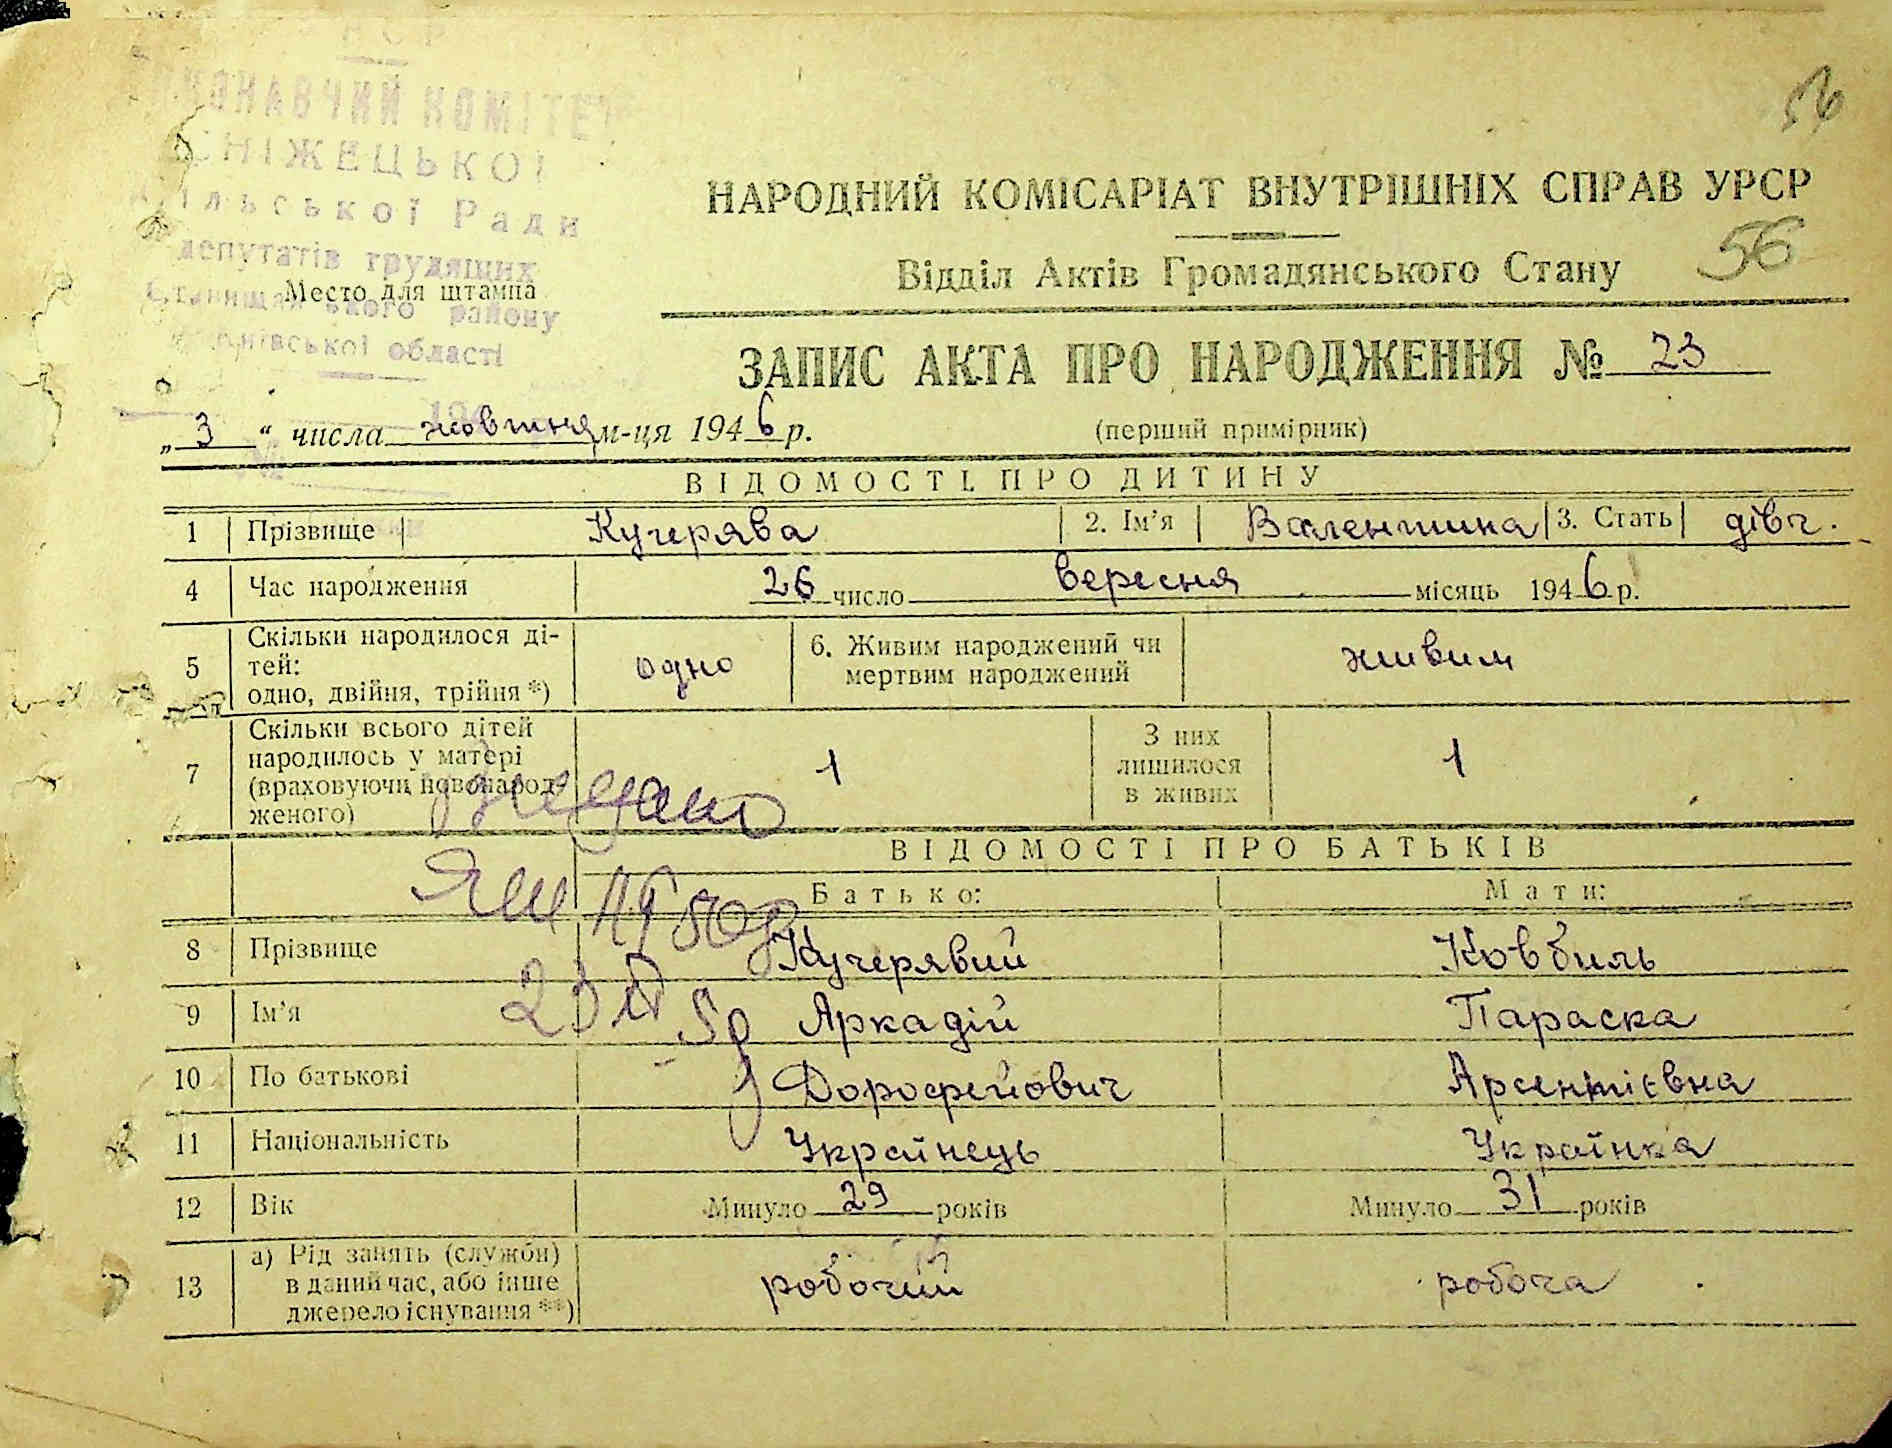 КОМІТЕТ
СНІЖЕЦЬКОЇ
Сільської Ради
депутатів трудящих
Место для штампа
ського району
області
56
НАРОДНИЙ КОМІСАРІАТ ВНУТРІШНІХ СПРАВ УРСР
Відділ Актів Громадянського Стану 56
ЗАПИС АКТА ПРО НАРОДЖЕННЯ № 23
„3“ числа жовтня м-ця 1946 р. (перший примірник)
ВІДОМОСТІ ПРО ДИТИНУ
1 Прізвище Кучерява 2. Ім’я Валентина 3. Стать дівч.
4 Час народження 26 число вересня місяць 1946 р.
5 Скільки народилося ді-
тей:
одно, двійня, трійня *) одно 6. Живим народжений чи
мертвим народжений живим
7 Скільки всього дітей
народилось у матері
(враховуючи новонарод-
женого) 1 З них
лишилося
в живих 1
ВІДОМОСТІ ПРО БАТЬКІВ
Батько: Мати:
8 Прізвище Кучерявий Ковбиль
9 Ім’я Аркадій Параска
10 По батькові Дорофейович Арсентієвна
11 Національність Українець Українка
12 Вік Минуло 29 років Минуло 31 років
13 а) Рід занять (служби)
в даний час, або інше
джерело існування **) робочий робоча